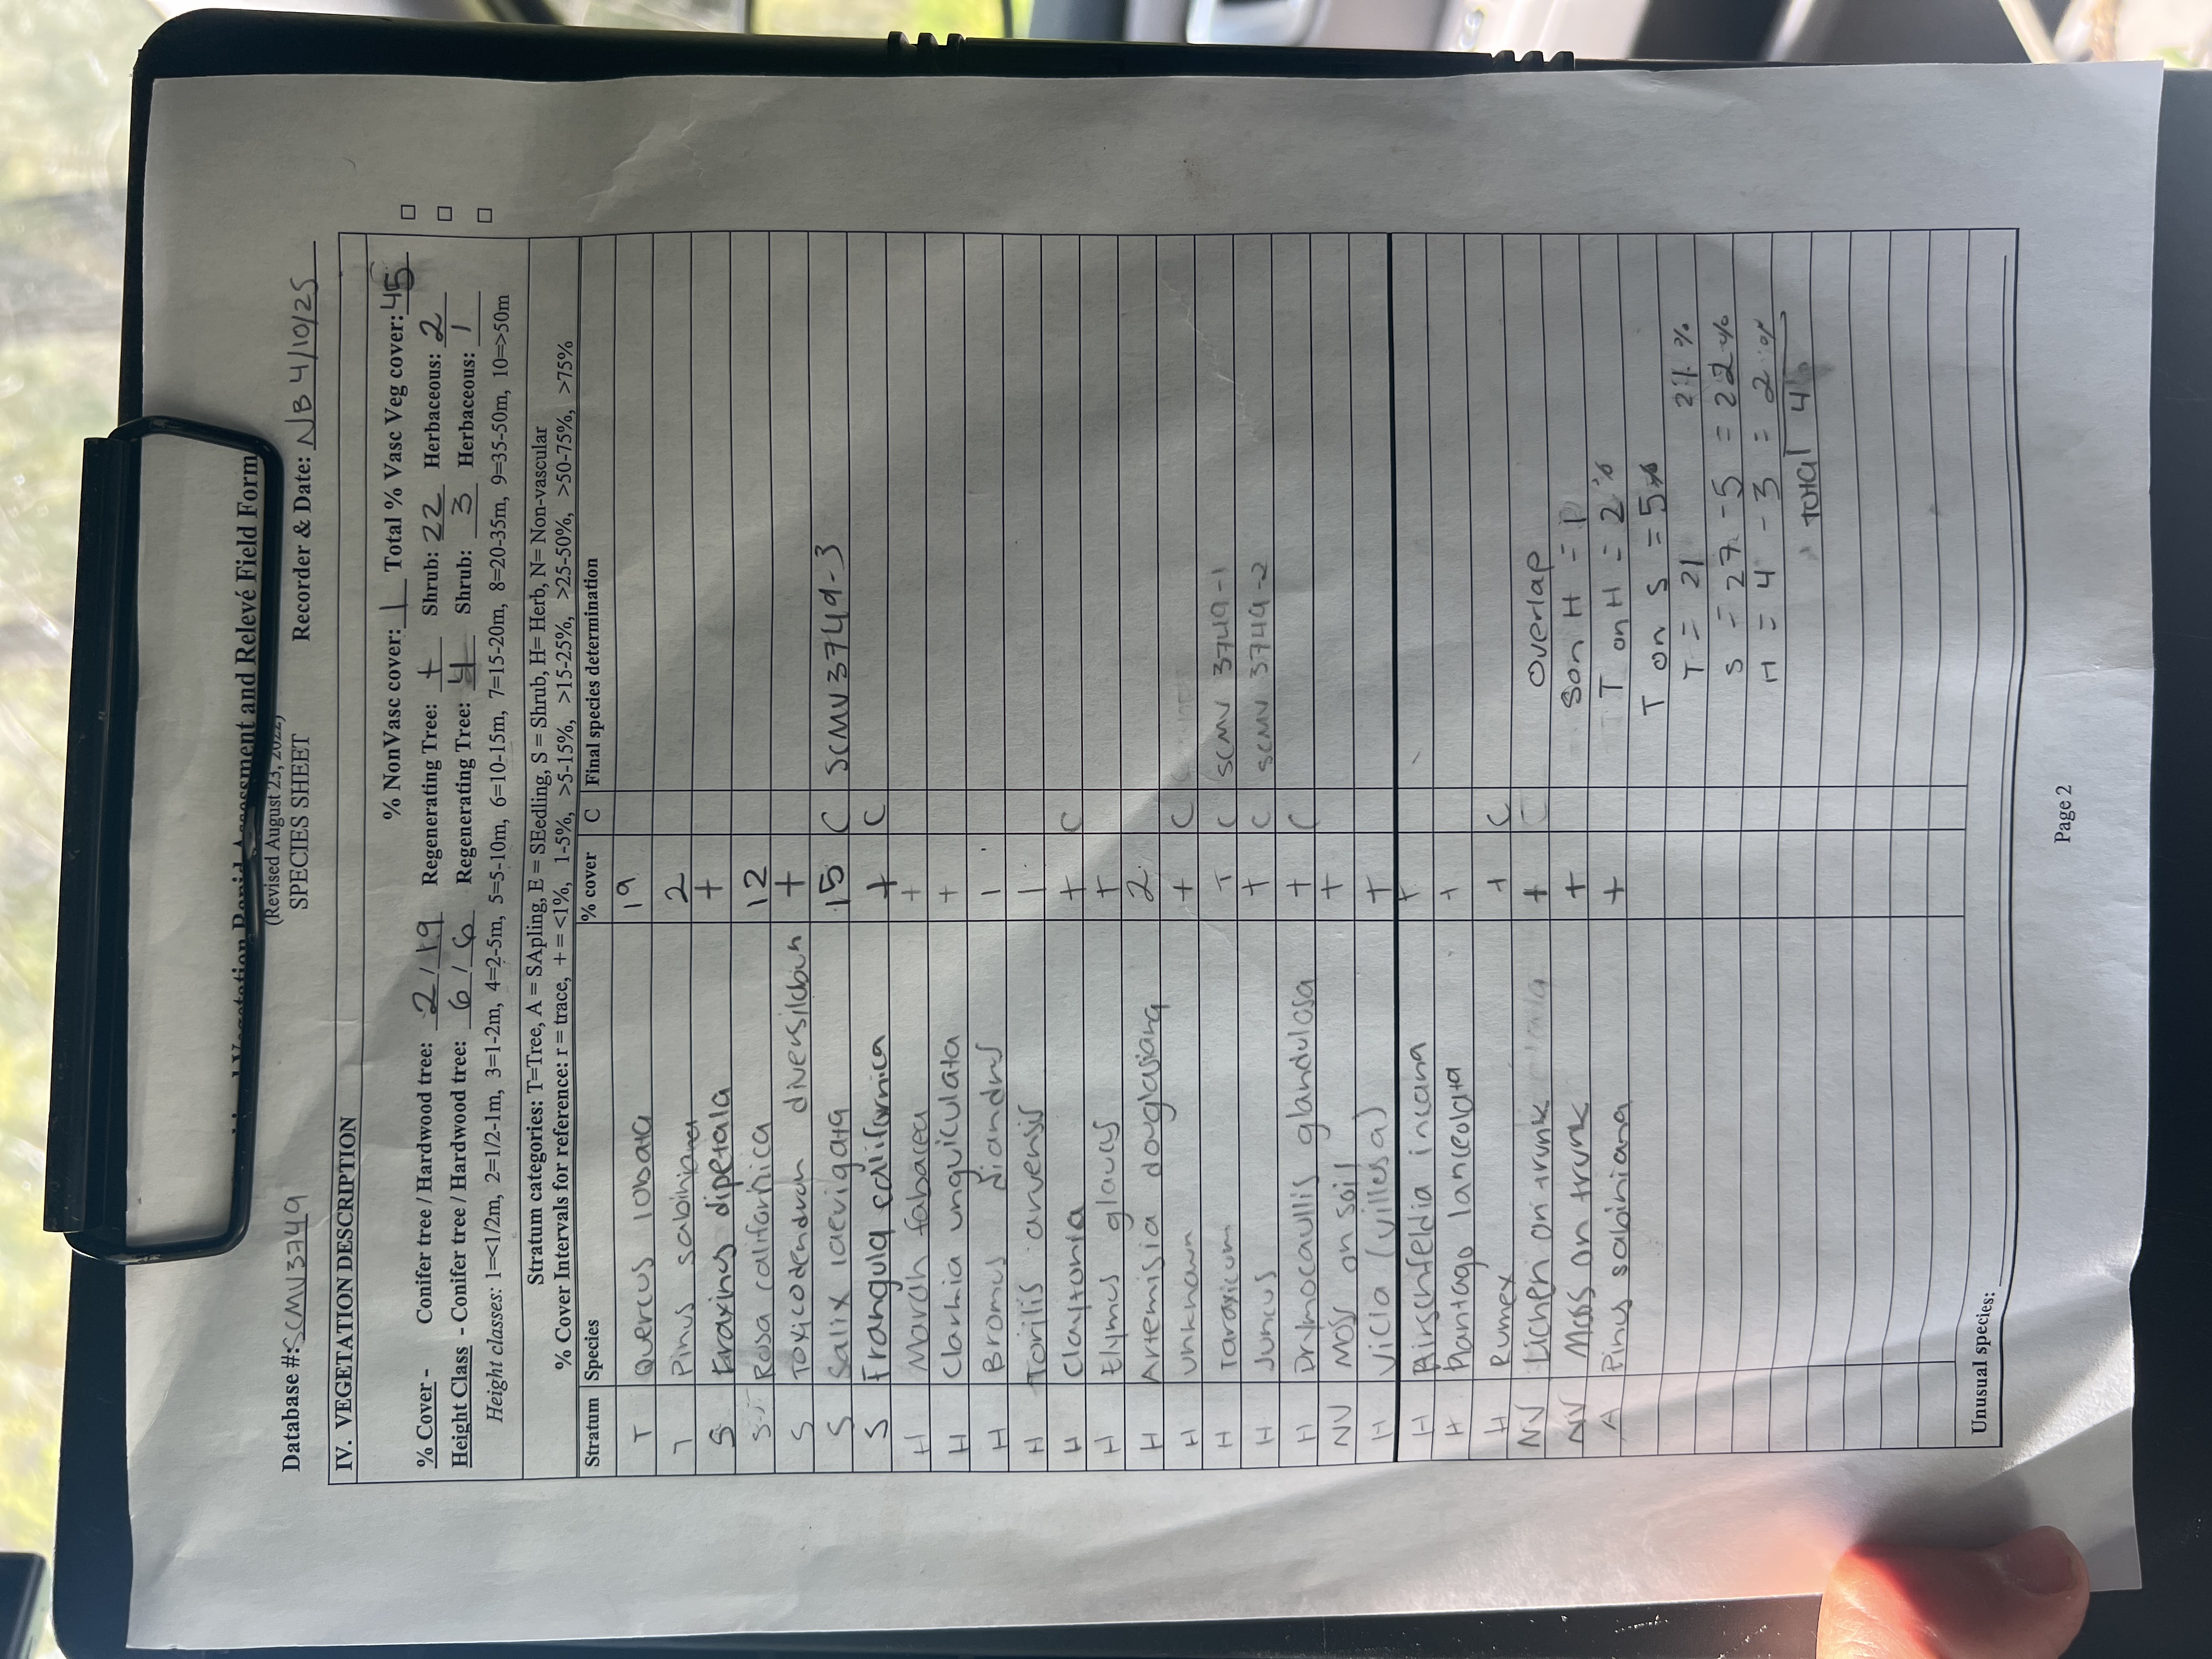 Vegetation Rapid Assessment and Relevé Field Form
(Revised August 23, 2022)
SPECIES SHEET
Database #: SCMV3749 Recorder & Date: NB 4/10/25
IV. VEGETATION DESCRIPTION
% NonVasc cover: 1 Total % Vasc Veg cover: 45
% Cover - Conifer tree / Hardwood tree: 2 / 19 Regenerating Tree: + Shrub: 22 Herbaceous: 2
Height Class - Conifer tree / Hardwood tree: 6 / 6 Regenerating Tree: 4 Shrub: 3 Herbaceous: 1
Height classes: 1=<1/2m, 2=1/2-1m, 3=1-2m, 4=2-5m, 5=5-10m, 6=10-15m, 7=15-20m, 8=20-35m, 9=35-50m, 10=>50m
Stratum categories: T=Tree, A = SApling, E = SEedling, S = Shrub, H= Herb, N= Non-vascular
% Cover Intervals for reference: r = trace, + = <1%, 1-5%, >5-15%, >15-25%, >25-50%, >50-75%, >75%
Stratum Species % cover C Final species determination
T Quercus lobata 19
T Pinus sabiniana 2
S Fraxinus dipetala +
S Rosa californica 12
S Toxicodendron diversilobum +
S Salix laevigata 15 C SCMV3749-3
S Frangula californica + C
H Marah fabacea +
H Clarkia unguiculata +
H Bromus diandrus 1
H Torilis arvensis 1
H Claytonia + C
H Elymus glaucus +
H Artemisia douglasiana 2
H Unknown + C
H Taraxicum + C SCMV 3749-1
H Juncus + C SCMV 3749-2
H Drymocaullis glandulosa + C
NV Moss on soil +
H Vicia (villosa) +
H Hirschfeldia incana +
H Plantago lanceolata +
H Rumex + C
NV Lichen on trunk + Overlap
NV Moss on trunk + S on H = 1
A Pinus sabiniana + T on H = 2%
T on S = 5%
T = 21 21%
S = 27 - 5 = 22%
H = 4 - 3 = 2%
total 45
Unusual species:
Page 2